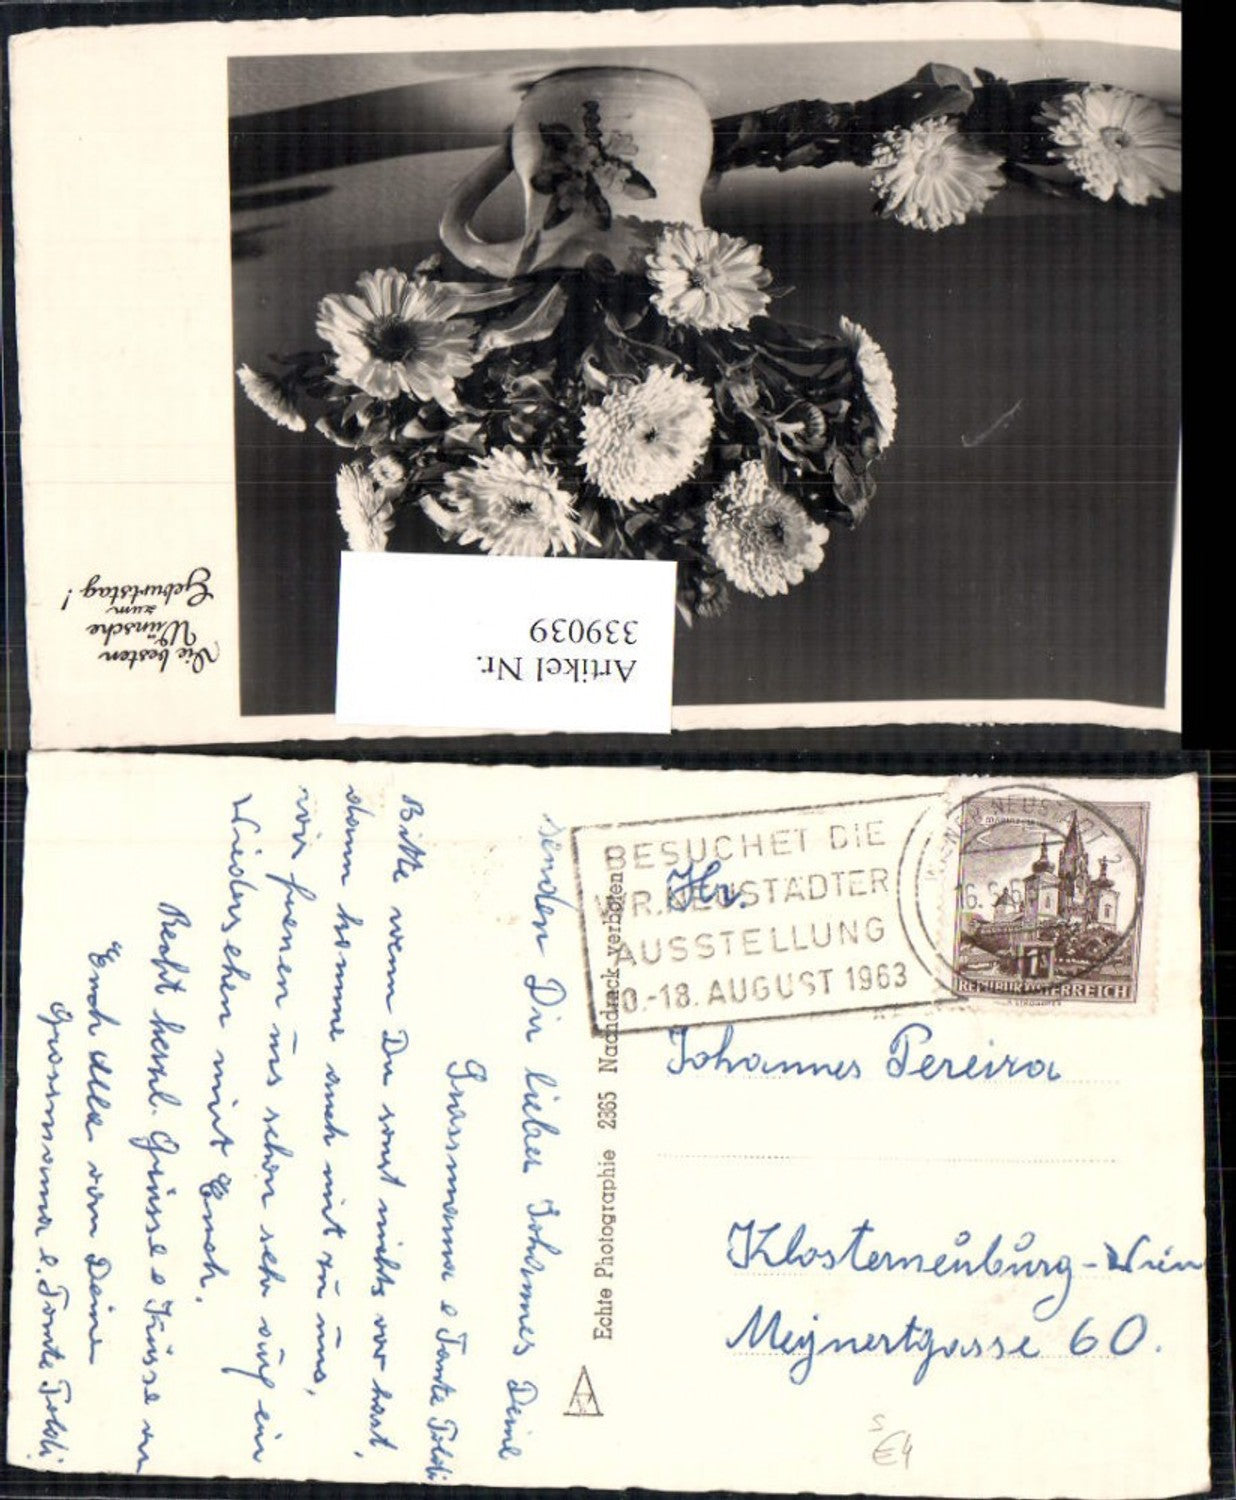 Die besten
Wünsche
zum
Geburtstag!
Artikel Nr.
339039
BESUCHET DIE
WR. NEUSTÄDTER
AUSSTELLUNG
0.-18. AUGUST 1963
WIENER NEUSTADT 2
16.
MARIAZELL
1
REPUBLIK ÖSTERREICH
Hr.
Johannes Pereira
Klosterneuburg-Wien
Meynertgasse 60.
Echte Photographie 2365 Nachdruck verboten
senden Dir lieber Johannes Deine
Grossmama e Tante Poldi
Bitte wenn Du sonst nichts vor hast,
dann komme auch mit zu uns,
wir freuen uns schon sehr auf ein
Wiedersehen mit Euch.
Recht herzl. Grüsse e Küsse an
Euch alle von Deine
Grossmama e. Tante Poldi
€4